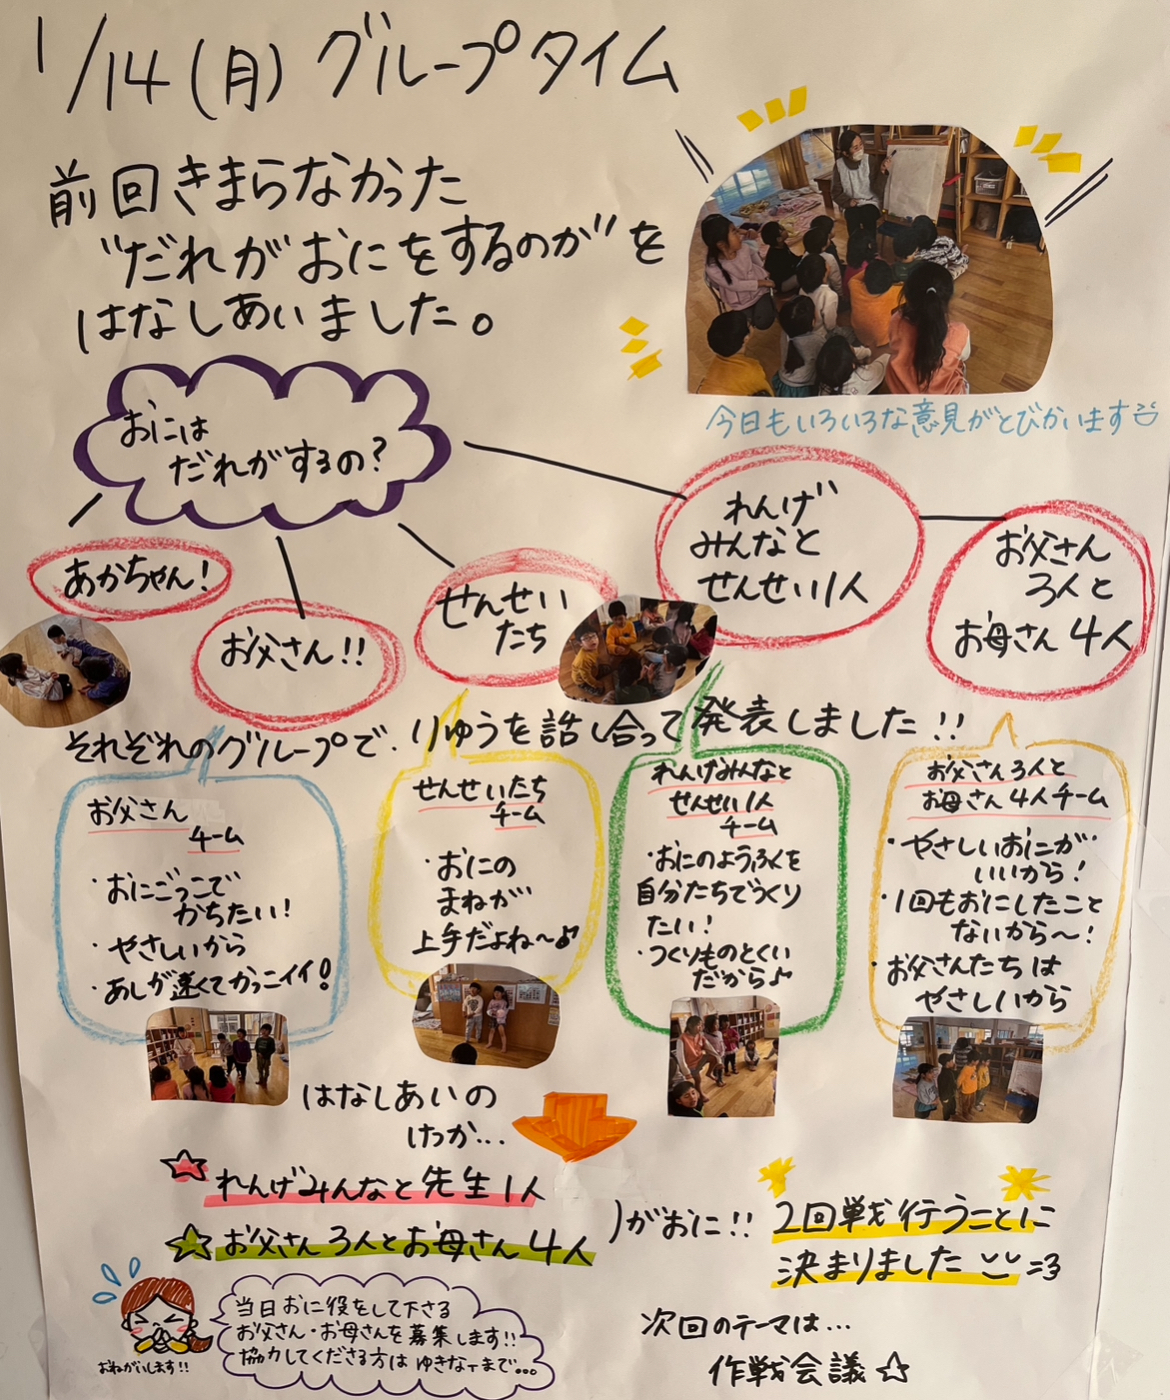 1/14(月)グループタイム
前回きまらなかった
"だれがおにをするのか"を
はなしあいました。
今日もいろいろな意見がとびかいます
おには
だれがするの?
あかちゃん!
お父さん!!
せんせい
たち
れんげ
みんなと
せんせい1人
お父さん
3人と
お母さん4人
それぞれのグループで、りゆうを話し合って発表しました!!
お父さん
チーム
・おにごっこで
かちたい!
・やさしいから
・あしが速くてカッコイイ!
せんせいたち
チーム
・おにの
まねが
上手だよね〜♪
れんげみんなと
せんせい1人
チーム
・おにのようふくを
自分たちでつくり
たい!
・つくりものとくい
だから♪
お父さん3人と
お母さん4人チーム
・やさしいおにが
いいから!
・1回もおにしたこと
ないから〜!
・お父さんたちは
やさしいから
はなしあいの
けっか…
☆れんげみんなと先生1人
☆お父さん3人とお母さん4人
)がおに!!
2回戦行うことに
決まりました
おねがいします!!
当日おに役をして下さる
お父さん・お母さんを募集します!!
協力してくださる方はゆきなTまで…
次回のテーマは…
作戦会議☆